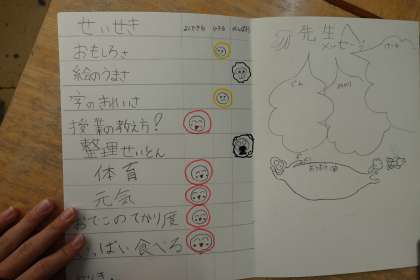 せいせき
よくできる
できる
がんばろう
おもしろさ
絵のうまさ
字のきれいさ
授業の教え方?
整理せいとん
体育
元気
おでこのてかり度
いっぱい食べる
先生へ
メッセージ